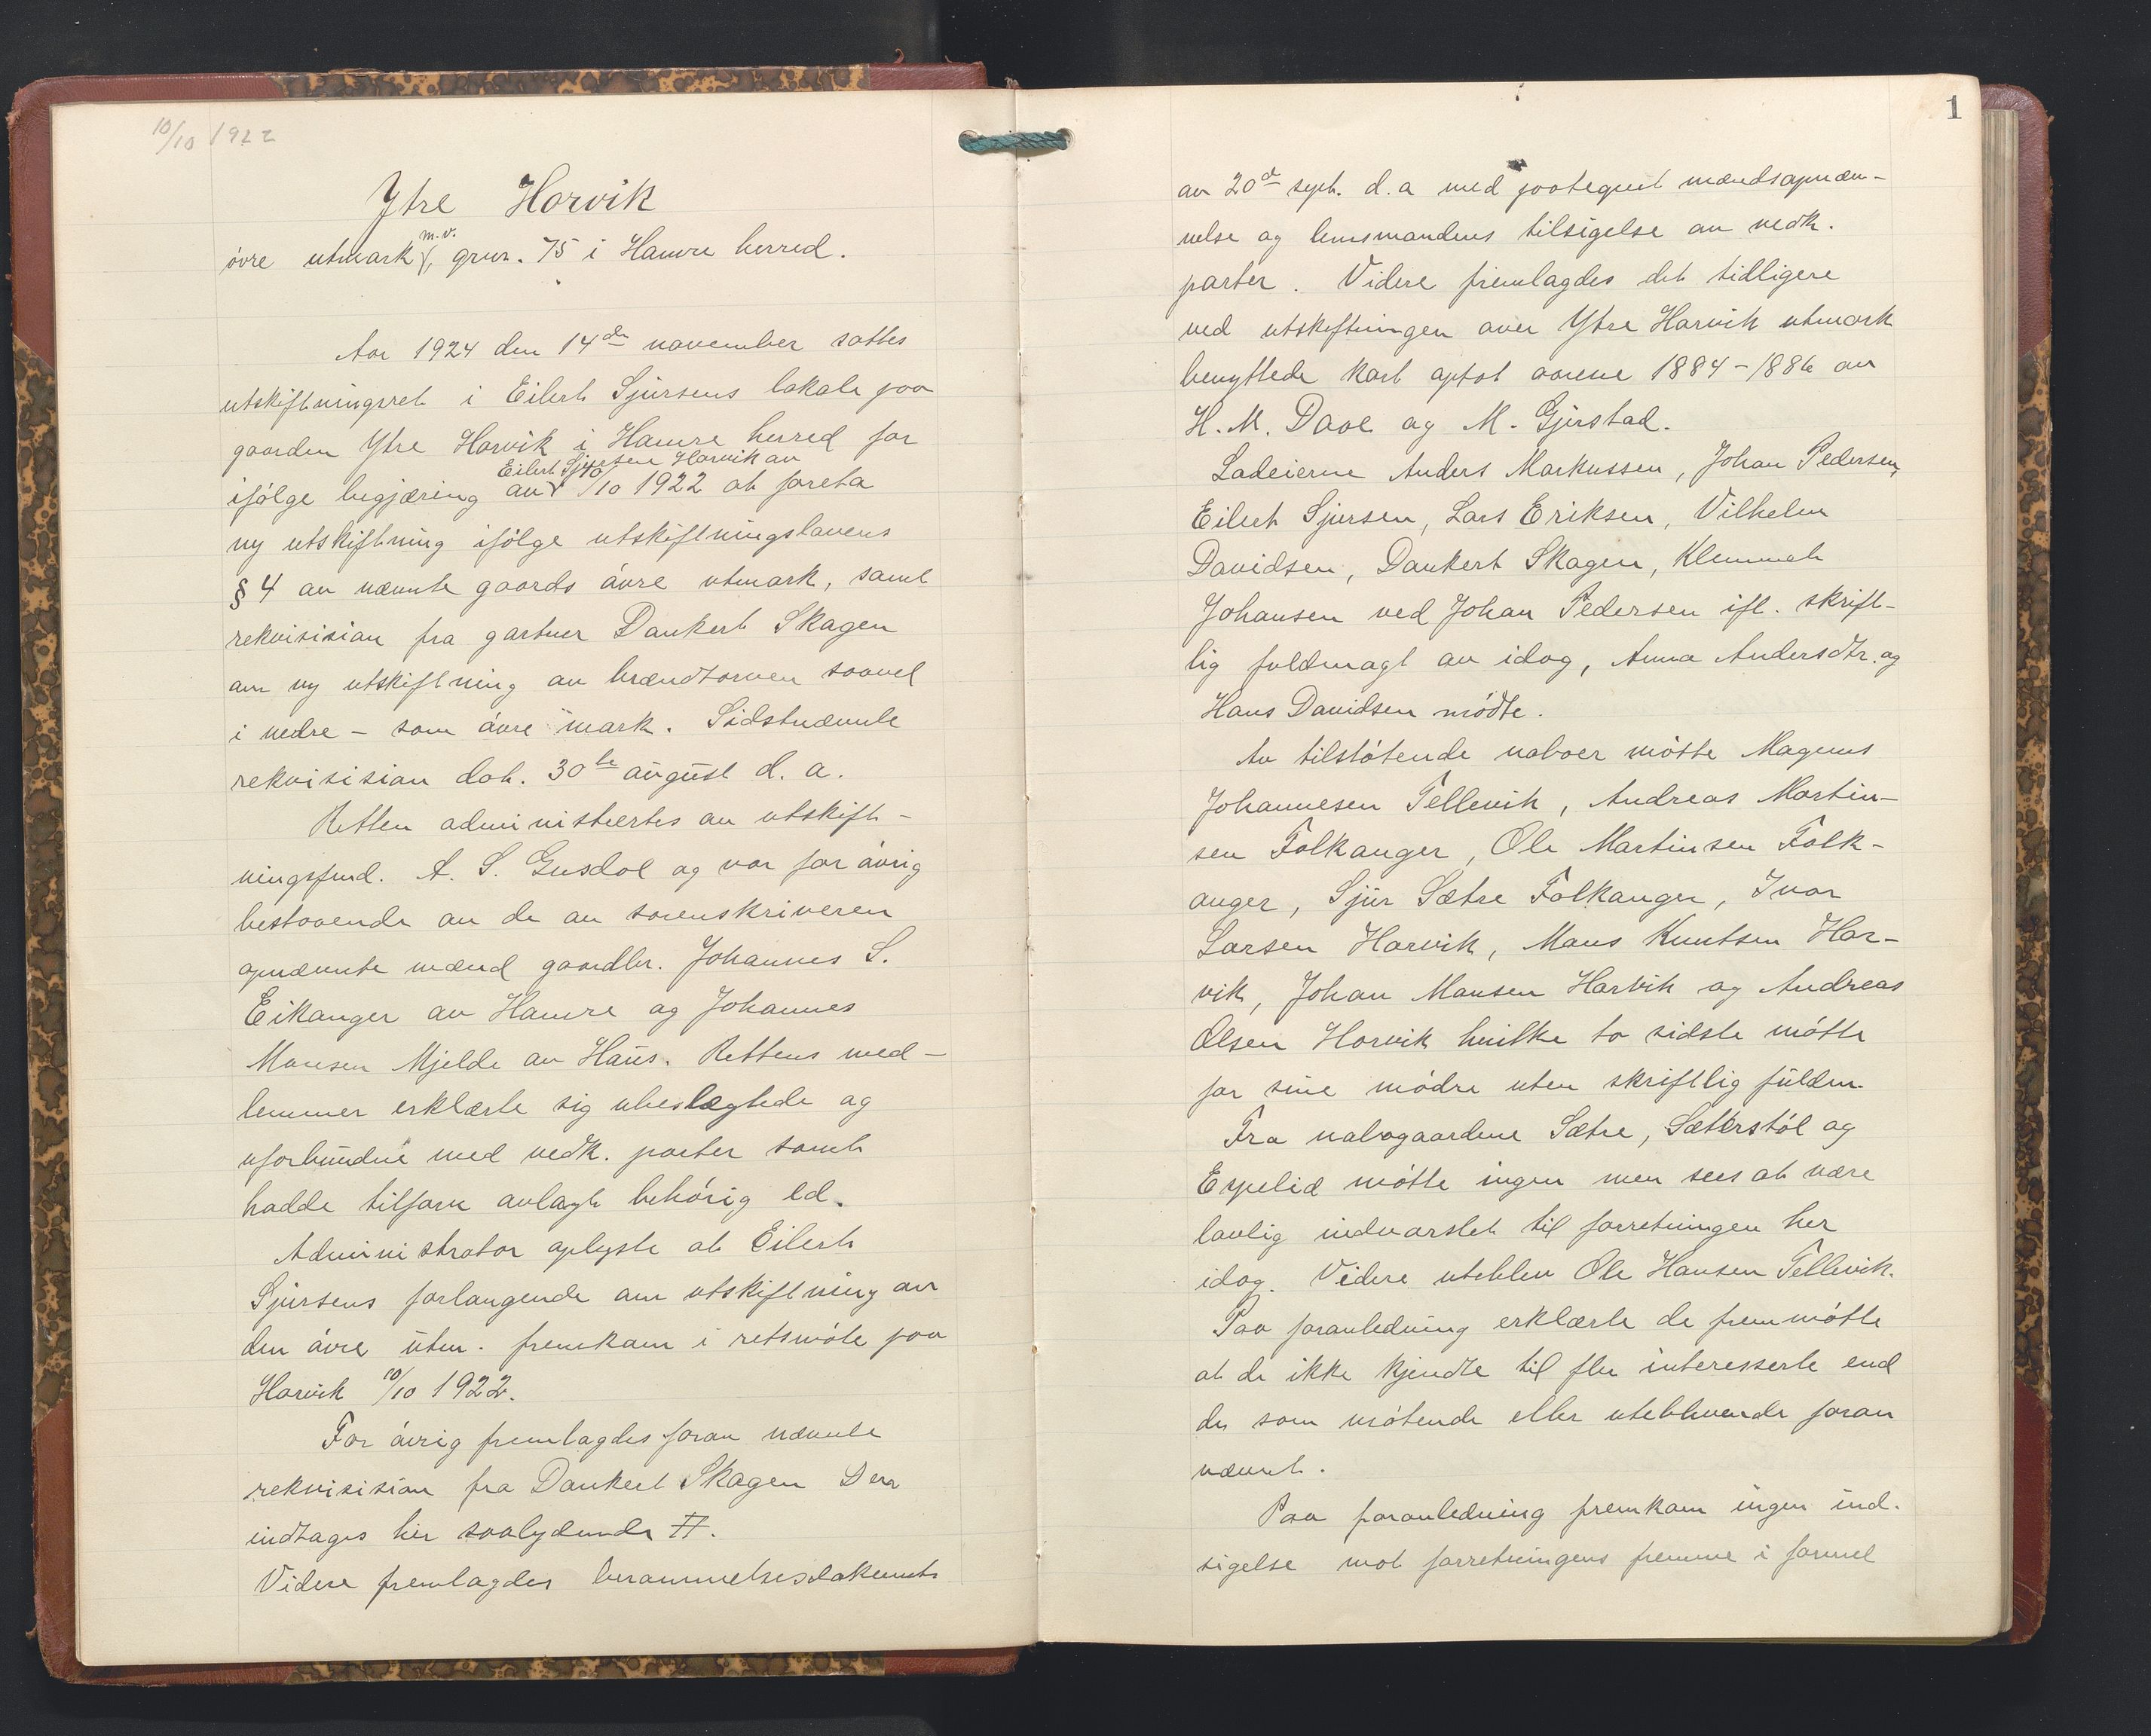 10/10 1922
Ytre Horvik
øvre utmark m.v., grnr. 75 i Hamre herred.
Aar 1924 den 14de november sattes
utskiftningsret i Eilert Sjursens lokale paa
gaarden Ytre Horvik i Hamre herred for
ifølge begjæring av Eilert Sjursen Horvik av 10/10 1922 at foreta
ny utskiftning ifølge utskiftningslovens
§ 4 av nævnte gaards øvre utmark, samt
rekvisision fra gartner Dankert Skagen
om ny utskiftning av brændtorven saavel
i nedre - som øvre mark. Sidstnævnte
rekvisision dat. 30te august d. a.
Retten administrertes av utskift-
ningsfmd. A. S. Gusdal og var for øvrig
bestaaende av de av sorenskriveren
opnævnte mænd gaardbr. Johannes S.
Eikanger av Hamre og Johannes
Monsen Mjelde av Haus. Rettens med-
lemmer erklærte sig ubeslægtede og
uforbundne med vedk. parter samt
hadde tilforn avlagt behørig ed.
Administrator oplyste at Eilert
Sjursens forlangende om utskiftning av
den øvre utm. fremkom i retsmøte paa
Horvik 10/10 1922.
For øvrig fremlagdes foran nævnte
rekvisision fra Dankert Skagen Den
indtages her saalydende #.
Videre fremlagdes berammelsesdokument
1
av 20de sept. d. a med paategnet mændsopnæv-
nelse og lensmandens tilsigelse av vedk.
parter. Videre fremlagdes det tidligere
ved utskiftningen over Ytre Horvik utmark
benyttede kart optat aarene 1884-1886 av
H. M. Daae og M. Gjerstad.
Lodeierne Anders Markussen, Johan Pedersen,
Eilert Sjursen, Lars Eriksen, Vilhelm
Davidsen, Dankert Skagen, Klemmet
Johansen ved Johan Pedersen ifl. skrift-
lig fuldmagt av idag, Anna Andersdtr. og
Hans Davidsen mødte.
Av tilstøtende naboer møtte Magnus
Johannesen Tellevik, Andreas Martin-
sen Falkanger, Ole Martinsen Falk-
anger, Sjur Sætre Falkanger, Ivar
Larsen Horvik, Mons Knutsen Hor-
vik, Johan Monsen Horvik og Andreas
Olsen Horvik hvilke to sidste møtte
for sine mødre uten skriftlig fuldm.
Fra nabogaardene Sætre, Sæterstøl og
Espelid møtte ingen men sees at være
lovlig indvarslet til forretningen her
idag. Videre uteblev Ole Hansen Tellevik.
Paa foranledning erklærte de fremmøtte
at de ikke kjendte til fler interesserte end
de som møtende eller uteblivende foran
nævnt.
Paa foranledning fremkom ingen ind-
sigelse mot forretningens fremme i formel